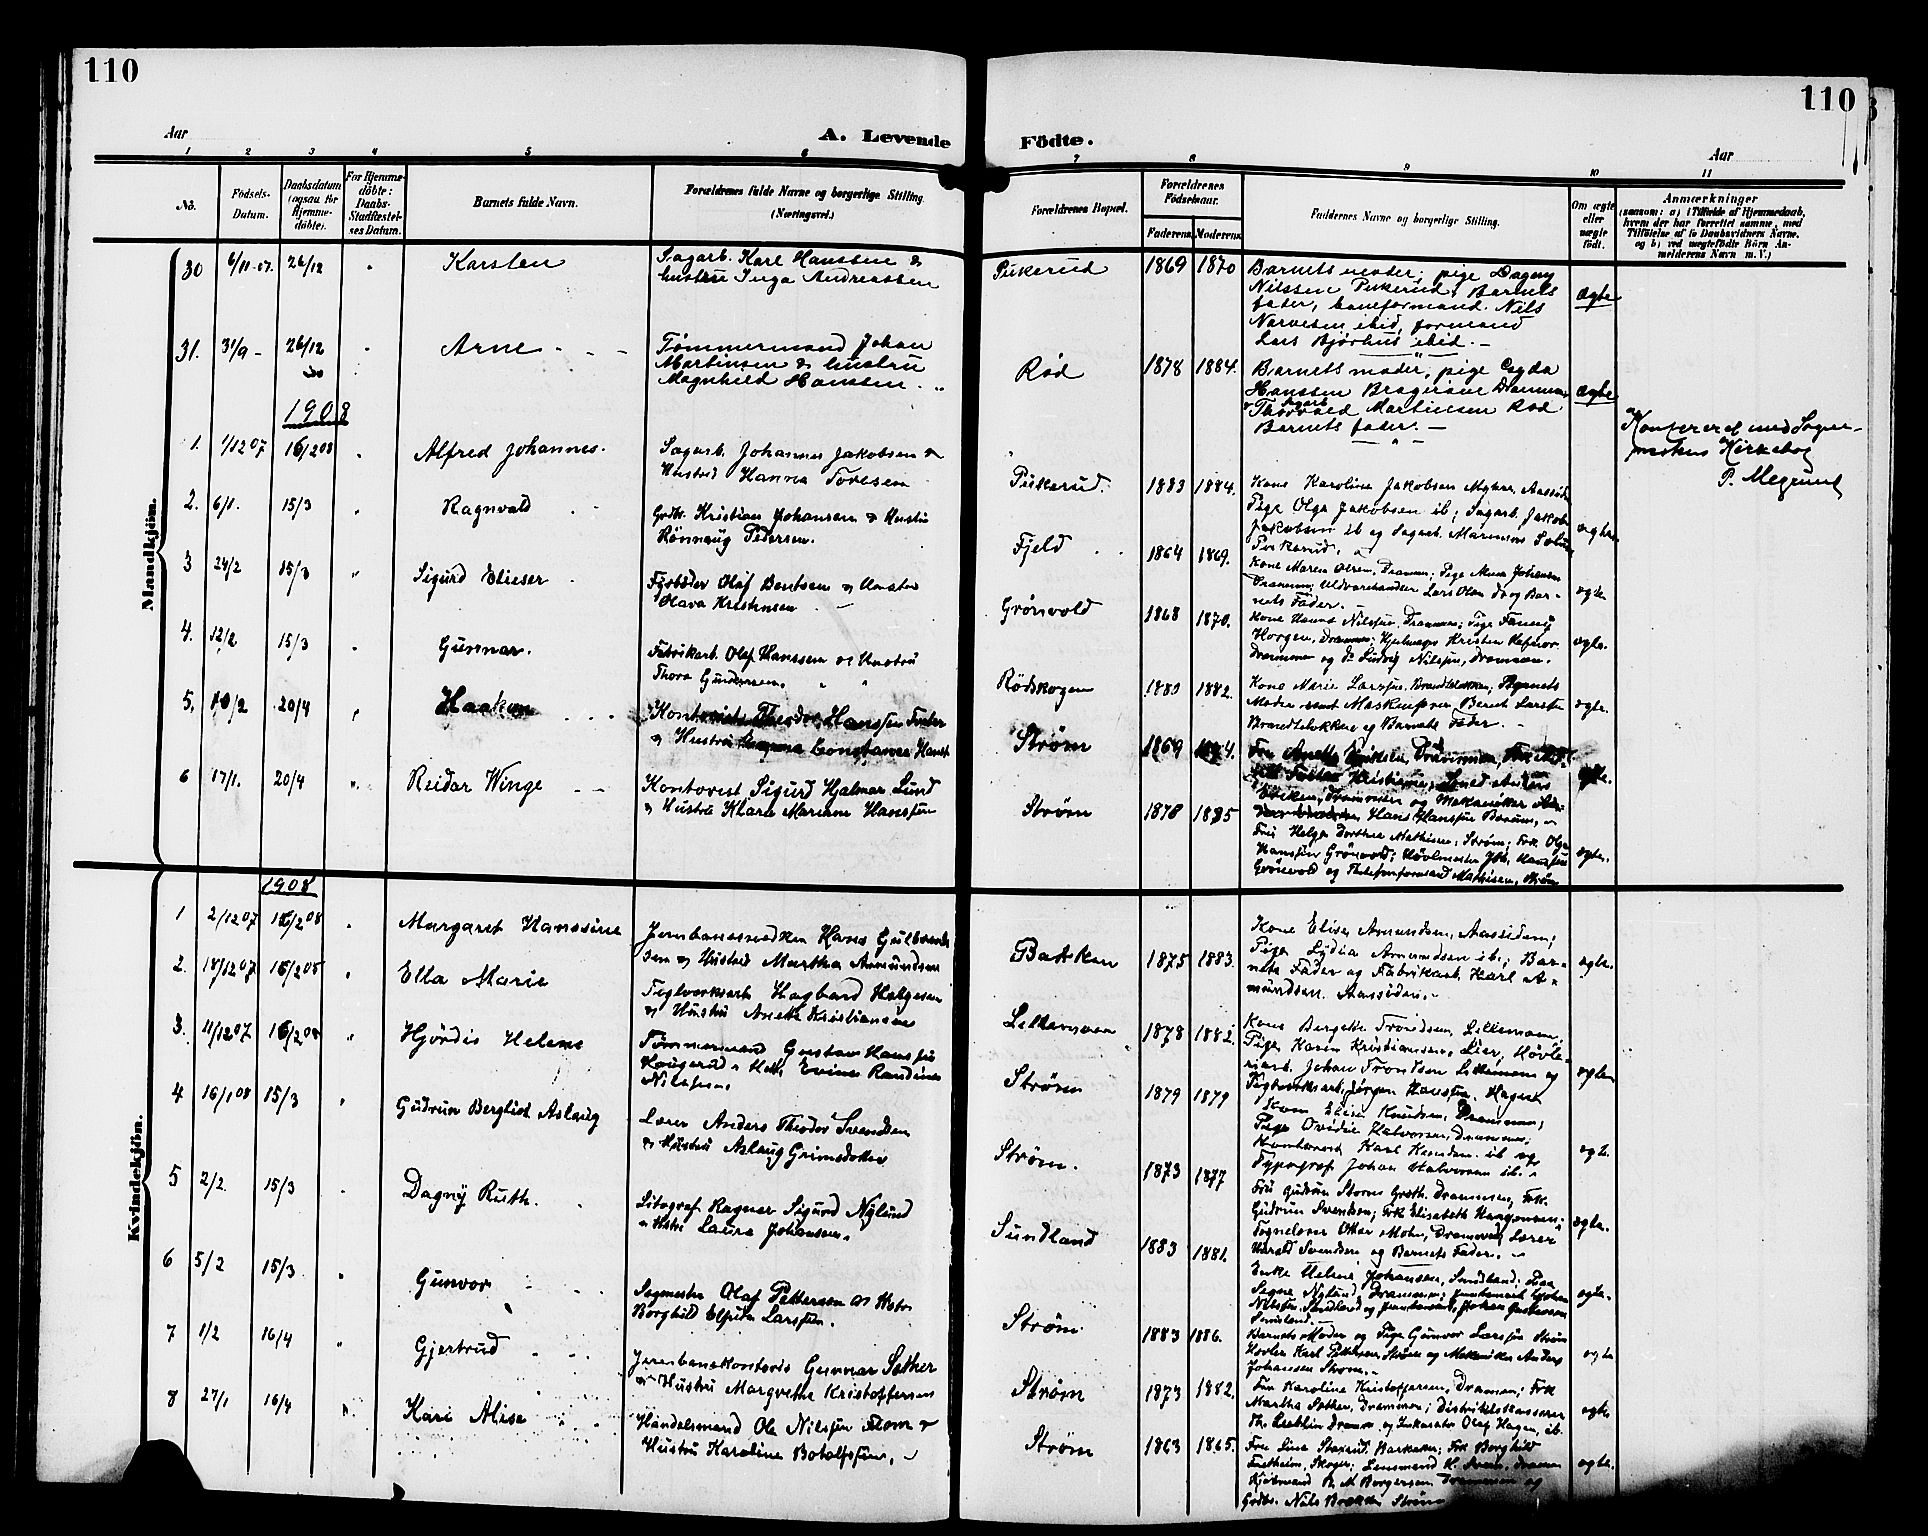 110
110
Aar
A. Levende
Födte.
Aar
1 2 3 4 5 6 7 8 9 10 11
No.
Födsels-
Datum.
Daabsdatum
(ogsaa for
Hjemme-
döbte).
For Hjemme-
döbte:
Daabs-
Stadfæstel-
ses Datum.
Barnets fulde Navn.
Forældrenes fulde Navne og borgerlige Stilling.
(Næringsvei.)
Forældrenes Bopæl.
Forældrenes
Födselsaar.
Faderens.
Moderens.
Faddernes Navne og borgerlige Stilling.
Om ægte
eller
uægte
födt.
Anmærkninger
(saasom: a) i Tilfælde af Hjemmedaab,
hvem der har forrettet samme, med
Tilföielse af to Daabsvidners Navne.
og b) ved uægtefödte Börn An-
melderens Navn m. V.)
Mandkjön.
30 6/11-07. 26/12 " Karsten
Sagarb. Karl Hanssen &
hustru Inga Andreassen
Pukerud 1869 1870
Barnets moder; pige Dagny
Nilssen Pukerud; Barnets
fader, baneformand Nils
Narvesen ibid, formand
Lars Bjørhus ibid. –
Ægte
31. 31/9 – 26/12 " Arne
Tømmermand Johan
Martinsen & hustru
Magnhild Hanssen
Rød 1878 1884.
Barnets moder; pige Cagda
Hanssen Bragerøen Drammen
Sagarb
& Thorvald Martinsen Rød
Barnets fader. –
Ægte
1908
1. 1/12 07 16/2 08 " Alfred Johannes.
Sagarb. Johannes Jakobsen &
Hustru Hanna Toresen
Pukerud. 1883 1884.
Kone Karoline Jakobsen Myhre, Aassiden
Pige Olga Jakobsen ib; Sagarb. Jakob
Jakobsen ib og Sagarb.
Pukerud.
ægte
Konfereret med Sogne-
prestens Kirkebog
P. Megrund
2. 6/1. 15/3 " Ragnvald
Grdbr. Kristian Johansen & Hustru
Rönnaug Pedersen.
Fjeld 1864 1869.
Kone Maren Olsen, Drammen; Pige Anna Johansen
Drammen; Uldvarehandler Lars Olsen do og Bar-
nets Fader.
ægte
3 24/2 15/3 " Sigurd Elieser
Fyrbøder Olaf Bentsen & Hustru
Olava Kristensen
Grönvold 1868 1870.
Kone Hanna Nilssen, Drammen; Pige Fanny
Horgen, Drammen; Hjulmager Kristen
Drammen og do Ludvig Nilssen, Drammen.
ægte.
4. 12/2 15/3 " Gunnar.
Fabrikarb. Olaf Hanssen & Hustru
Thora Gundersen.
Rödskogen 1880 1882.
Kone Marie Larssen, Brandtelökken; Barnets
Moder samt Maskinprøver Bernt Larssen
Brandtelökken og Barnets Fader. –
ægte.
5. 10/2 20/4 " Haakon
Kontorist Theodor Hanssen Foster
& Hustru Constance Hansen
Strøm 1869
Drammen
Kristiania
Drammen og Mekaniker
Hans Hanssen Bærum.
ægte.
6 17/1. 20/4 " Reidar Winge
Kontorist Sigurd Hjalmar Lund
& Hustru Klara Mariane Hanssen
Strøm 1878 1885
Fru Helga Dorthea Mathisen, Strøm; Frk Olga
Hanssen Grönvold; Hövlmester Joh. Hanssen
Grönvold og Telefonformand Mathisen, Strøm
ægte.
Kvindekjön.
1908
1 2/12 07 16/2 08 " Margaret Hanssine
Jernbanesnedker Hans Gulbrand-
sen & Hustru Martha Amundsen
Bakken 1875 1883.
Kone Elise Amundsen, Aassiden;
Pige Lydia Amundsen ib.; Bar-
nets Fader og Fabrikarb. Karl A-
mundsen. Aassiden. –
ægte.
2. 18/12 07 16/2 08 " Ella Marie
Teglverksarb Hagbard Helgesen
& Hustru Anette Kristiansen
Lillemoen 1878 1882.
Kone Bergitte Trondsen, Lillemoen;
Pige Karen Kristiansen, Lier; Hövle-
riarb. Johan Trondsen Lillemoen og
Teglverksarb. Jörgen Hanssen, Hagen
ægte
3. 11/12 07 16/2 08 " Hjördis Helene
Tömmermand Gustav Hanssen
Haugerud & Hstr. Evine Randine
Nilssen.
Strøm 1879 1879
Kone Elise Knudsen, Drammen;
Pige Ovidie Halvorsen, Drammen;
Kontorist Karl Knudsen ib og
Typograf Johan Halvorsen ib. –
ægte.
4 16/1 08 15/3 " Gudrun Bergliot Aslaug
Lærer Anders Theodor Svendsen
& Hustru Aslaug Grimsdatter
Strøm. 1873 1877
Fru Gudrun Storm Groth. Drammen, Frk.
Gudrun Svendsen; Frk Elisabeth Haagensen;
Togneleser Ottar Mohn, Drammen; Lærer
Harald Svendsen og Barnets Fader. –
ægte.
5 2/2. 15/3 " Dagny Ruth.
Litograf Ragnar Sigurd Nylund
& Hstr Laura Johansen.
Sundland 1883 1881.
Enke Helene Johansen, Sundland; Pige
Signe Nylund, Drammen;
Nilssen, Sundland og Johan Gustavsen
Sundland.
ægte.
6 5/2 15/3 " Gunvor
Sagmester Olaf Pettersen & Hstr.
Borghild Elfrida Larssen.
Strøm 1883 1886.
Barnets Moder og Pige Gunvor Larssen Strøm
Høvler Karl Pettersen, Strøm og Mekaniker Anders
Johansen Strøm. –
ægte
7 1/2 16/4 " Gjertrud
Jernbanekontorist Gunnar Sæther
& Hustru Margrethe Kristoffersen
Strøm 1873 1882.
Fru Karoline Kristoffersen, Drammen; Frk
Martha Sæther, Drammen; Distriktskasserer
Th. Drammen og Olaf Hagen, ib.
ægte
8 27/1 16/4 " Kari Alise
Handelsmand Ole Nilssen Flom &
Hustru Karoline Botolfssen.
Strøm 1863 1865.
Fru Lina Barkaker; Frk Borghild
Fretheim, Skoger; Lensmand H. Drammen
Kjöbmand B. M. Borgersen Drammen og
Grdbr. Nils Brække Strøm
ægte.